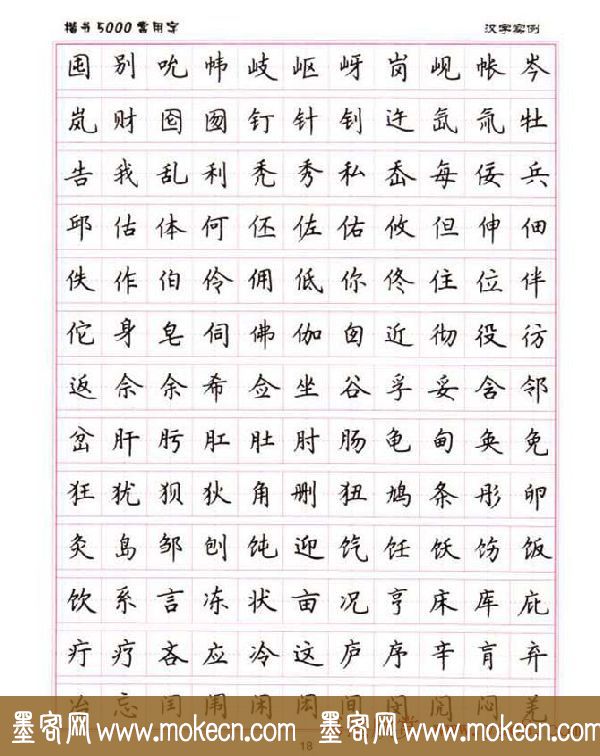 楷书5000常用字 汉字实例
囤 别 吮 帏 歧 岖 岈 岗 岘 帐 岑
岚 财 囵 囫 钉 针 钊 迕 氙 氚 牡
告 我 乱 利 秃 秀 私 岙 每 佞 兵
邱 估 体 何 伾 佐 佑 攸 但 伸 佃
佚 作 伯 伶 佣 低 你 佟 住 位 伴
佗 身 皂 伺 佛 伽 囱 近 彻 役 彷
返 佘 余 希 佥 坐 谷 孚 妥 含 邻
岔 肝 肟 肛 肚 肘 肠 龟 甸 奂 免
狂 犹 狈 狄 角 删 狃 鸠 条 彤 卵
灸 岛 邹 刨 饨 迎 饩 饪 饫 饬 饭
饮 系 言 冻 状 亩 况 亨 床 库 庇
疔 疗 吝 应 冷 这 庐 序 辛 肓 弃
冶 忘 闰 闱 闲 闳 间 闵 闶 闷 羌
18
墨客网 www.mokecn.com 墨客网 www.mokecn.com